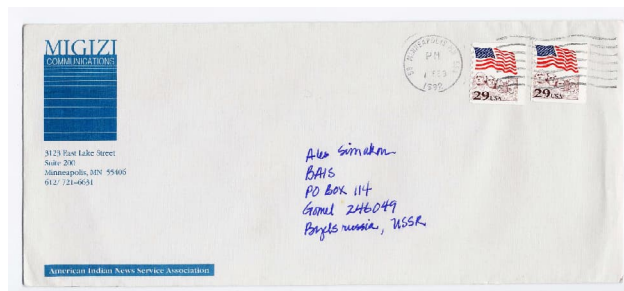 MIGIZI
COMMUNICATIONS
3123 East Lake Street
Suite 200
Minneapolis, MN 55406
612/ 721-6631
American Indian News Service Association
PM
1992
29 USA
29 USA
Alex Simakon
BAIS
PO BOX 114
Gomel 246049
Byelorussia, USSR